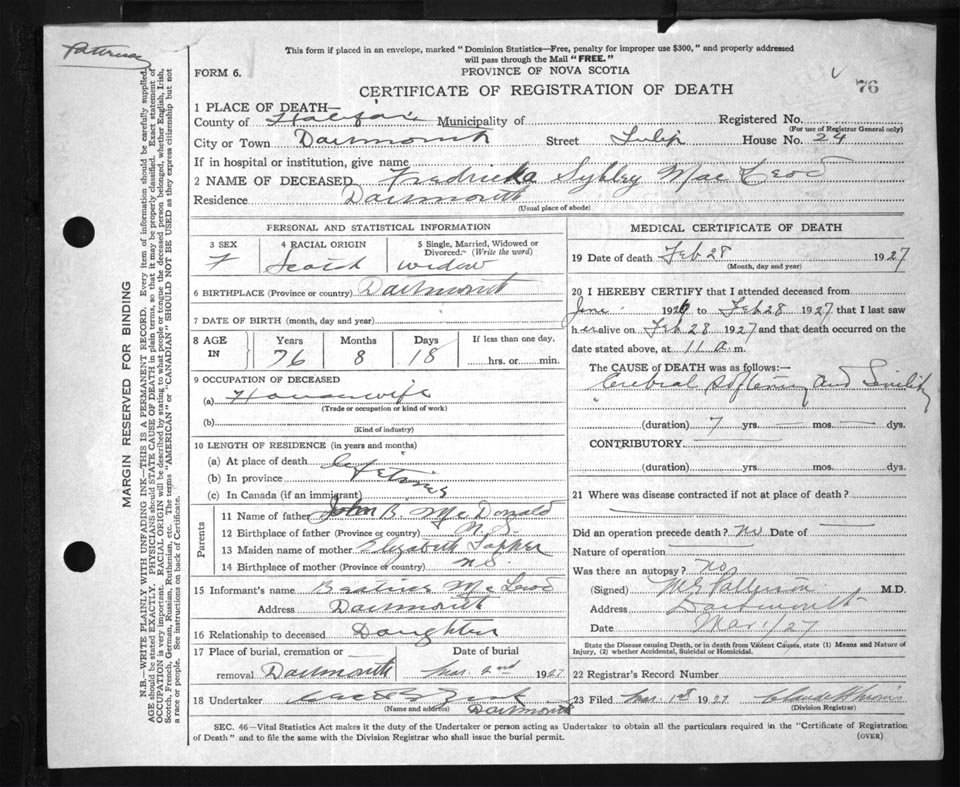 This form if placed in an envelope, marked "Dominion Statistics—Free, penalty for improper use $300," and properly addressed
will pass through the Mail "FREE."
FORM 6.
PROVINCE OF NOVA SCOTIA
76
CERTIFICATE OF REGISTRATION OF DEATH
1 PLACE OF DEATH—
County of Halifax Municipality of
Registered No.
(For use of Registrar General only)
City or Town Dartmouth Street Tulip House No. 24
If in hospital or institution, give name
2 NAME OF DECEASED Fredricka Sybley Mac Leod
Residence Dartmouth
(Usual place of abode)
PERSONAL AND STATISTICAL INFORMATION
3 SEX F
4 RACIAL ORIGIN Scotch
5 Single, Married, Widowed or Divorced. (Write the word) widow
6 BIRTHPLACE (Province or country) Dartmouth
7 DATE OF BIRTH (month, day and year)
8 AGE IN Years 76 Months 8 Days 18 If less than one day, hrs. or min.
9 OCCUPATION OF DECEASED
(a) Housewife
(Trade or occupation or kind of work)
(b)
(Kind of industry)
10 LENGTH OF RESIDENCE (in years and months)
(a) At place of death
(b) In province
(c) In Canada (if an immigrant)
Parents
11 Name of father John B. McDonald
12 Birthplace of father (Province or country) N.S.
13 Maiden name of mother Elizabeth
14 Birthplace of mother (Province or country) N.S.
15 Informant's name Beatrice McLeod
Address Dartmouth
16 Relationship to deceased Daughter
17 Place of burial, cremation or removal Dartmouth
Date of burial Mar. 2nd 1927
18 Undertaker
(Name and address) Dartmouth
MEDICAL CERTIFICATE OF DEATH
19 Date of death Feb 28 1927
(Month, day and year)
20 I HEREBY CERTIFY that I attended deceased from
1926 to Feb 28 1927 that I last saw
her alive on Feb 28 1927 and that death occurred on the
date stated above, at 11 a. m.
The CAUSE OF DEATH was as follows:—
Cerebral Softening and Senility
(duration) 7 yrs. — mos. — dys.
CONTRIBUTORY
(duration) yrs. mos. dys.
21 Where was disease contracted if not at place of death?
Did an operation precede death? no Date of
Nature of operation
Was there an autopsy? no
(Signed) M.D.
Address Dartmouth
Date Mar 1/27
State the Disease causing Death, or in death from Violent Causes, state (1) Means and Nature of
Injury, (2) whether Accidental, Suicidal or Homicidal.
22 Registrar's Record Number
23 Filed Mar. 1st 1927
(Division Registrar)
SEC. 46—Vital Statistics Act makes it the duty of the Undertaker or person acting as Undertaker to obtain all the particulars required in the "Certificate of Registration
of Death" and to file the same with the Division Registrar who shall issue the burial permit.
(OVER)
MARGIN RESERVED FOR BINDING
N.B.—WRITE PLAINLY WITH UNFADING INK—THIS IS A PERMANENT RECORD. Every item of information should be carefully supplied.
AGE should be stated EXACTLY. PHYSICIANS should STATE CAUSE OF DEATH in plain terms, so that it may be properly classified. Exact statement of
OCCUPATION is very important. RACIAL ORIGIN will be described by stating to what people or tongue the deceased person belonged, whether English, Irish,
Scotch, French, German, Russian, Ruthenian, etc. The terms "AMERICAN" or "CANADIAN" SHOULD NOT BE USED as they express citizenship but not
a race or people. See instructions on back of Certificate.